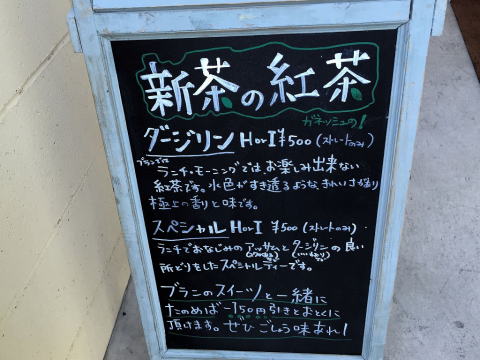 新茶の紅茶
ガネッシュの!
ダージリン HorI ¥500 (ストレートのみ)
ランチ・モーニングでは、お楽しみ出来ない
紅茶です。水色がすき透るような、きれいさ、香り
極上の香りと味です。
スペシャル HorI ¥500 (ストレートのみ)
ランチでおなじみのアッサムとダージリンの良い
所どりをしたスペシャルティーです。
プランのスイーツと一緒に
たのめば -150円引きとおとくに
頂けます。ぜひごしょう味あれ!